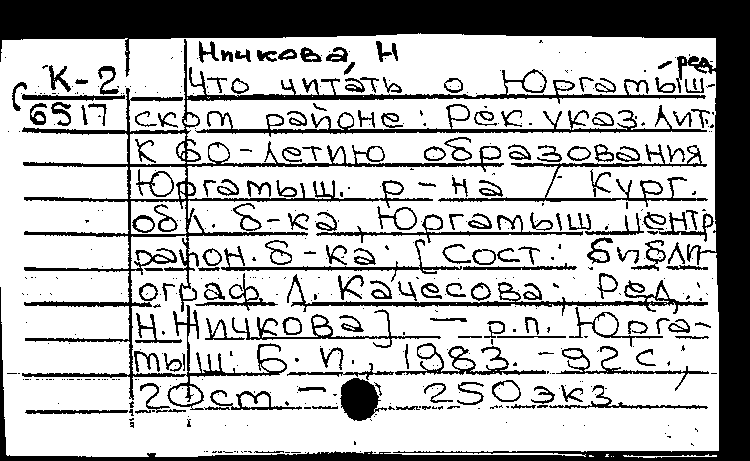 Ничкова, Н
ред.
К-2 Что читать о Юргамыш-
6517 ском районе: Рек. указ. лит.
К 60-летию образования
Юргамыш. р-на / Кург.
обл. б-ка, Юргамыш. центр.
район. б-ка; [Сост.: библи-
ограф Л. Качесова; Ред.:
Н. Ничкова]. - р.п. Юрга-
мыш: Б. и., 1983. - 92 с.;
20 ст. - 250 экз.